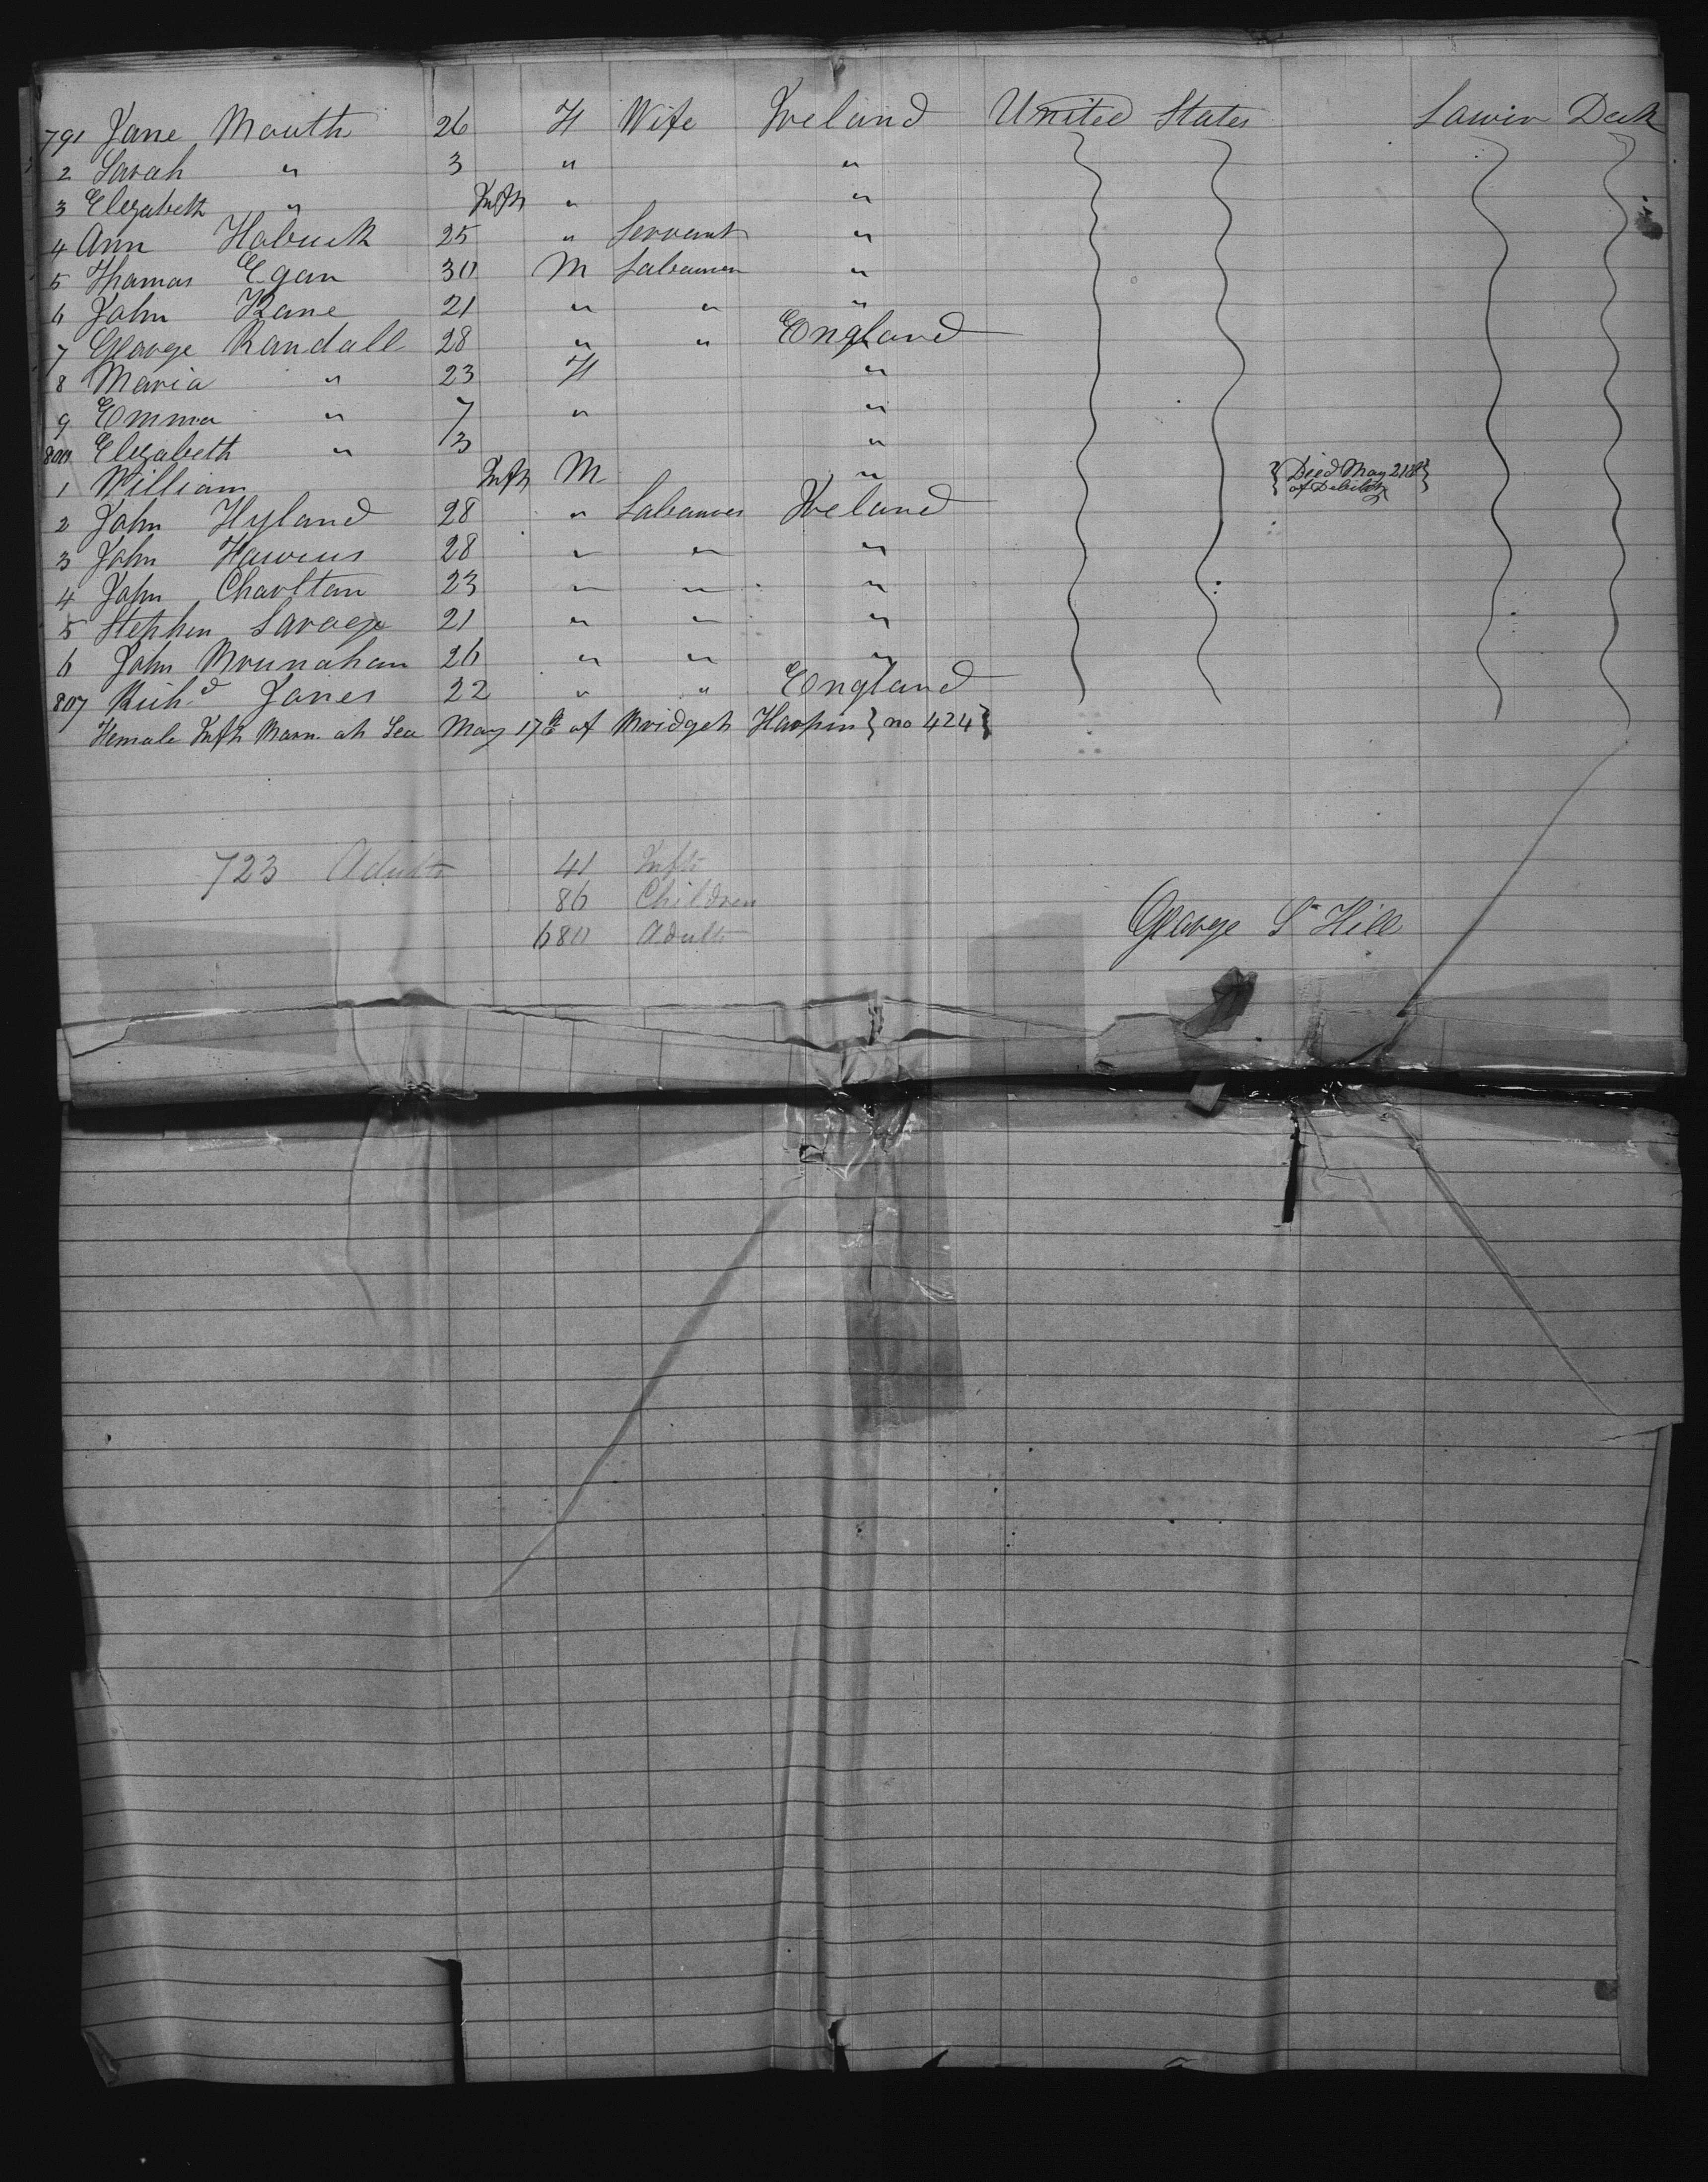 791 Jane Mouth 26 F Wife Ireland United States Lower Deck
2 Sarah " 3 " "
3 Elizabeth " Inft " "
4 Ann 25 " Servant "
5 Thomas Egan 30 M Labourer "
6 John Kane 21 " " "
7 George Randall 28 " " England
8 Maria " 23 F "
9 Emma " 7 " "
800 Elizabeth " 3 "
1 William Inft M " {Died May 21st of Debility}
2 John Hyland 28 " Labourer Ireland
3 John 28 " " "
4 John Charlton 23 " " "
5 Stephen Savage 21 " " "
6 John Brunahan 26 " " "
807 Richd Jones 22 " " England
Female Inft Born at Sea May 17th of Bridget Harpin {no 424}
723 Adults 41 Infts
86 Children
680 Adults
George S Hill